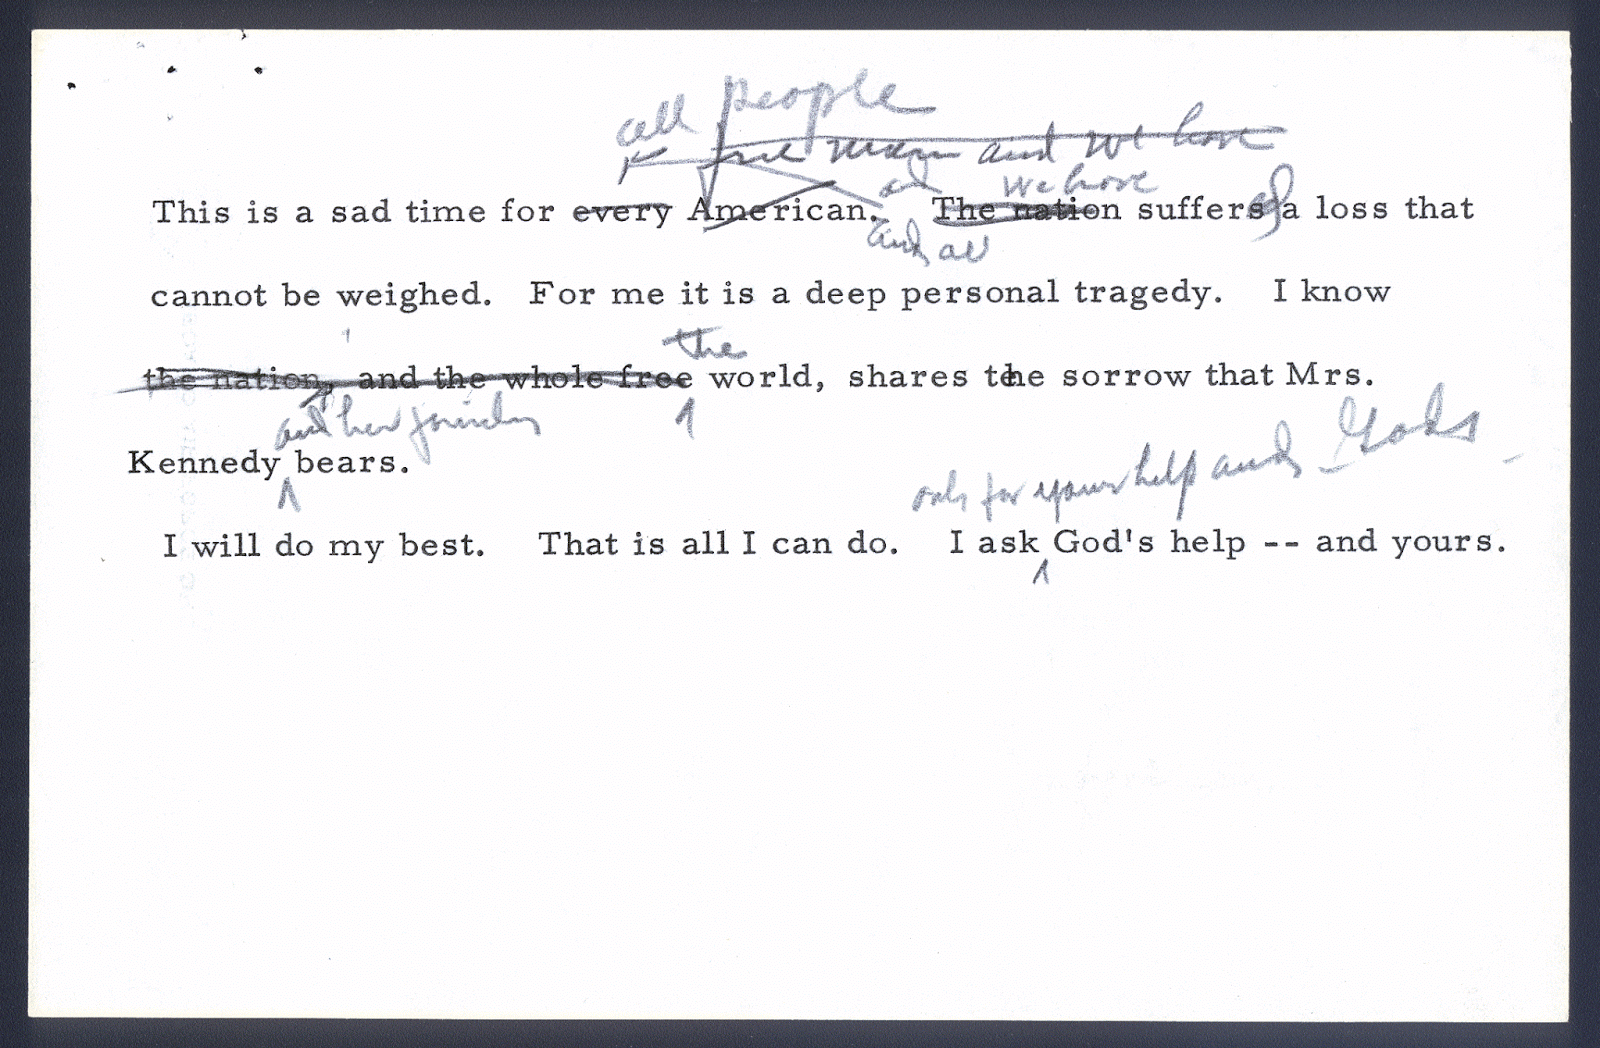 all people
free men and we have
and we have
This is a sad time for every American. The nation suffers a loss that
and all
cannot be weighed. For me it is a deep personal tragedy. I know
the
the nation, and the whole free world, shares the sorrow that Mrs.
and her
Kennedy bears.
only for your help and God's
I will do my best. That is all I can do. I ask God's help -- and yours.